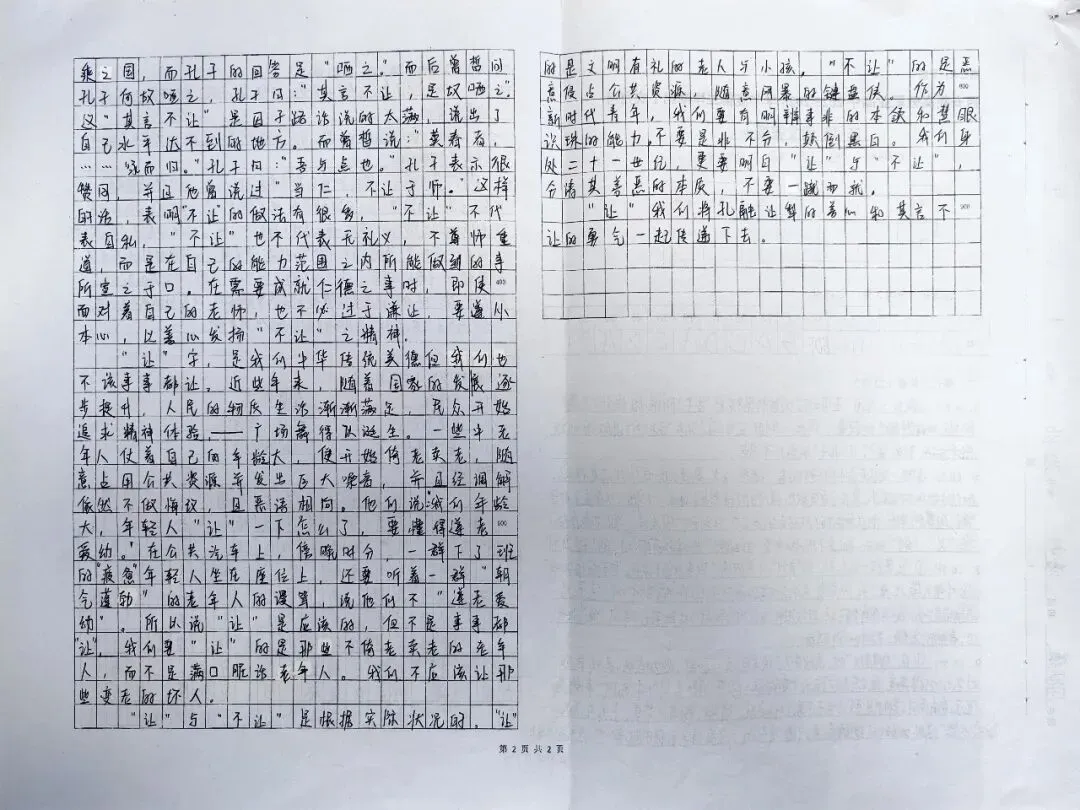 乘之国，而孔子的回答是“哂之”。而后曾哲问
孔子何故哂之，孔子曰：“其言不让，是故哂之。”
义“其言不让”是因子路话说的太满，说出了
自己水平达不到的地方。而曾哲说：“莫春者，
……咏而归。”孔子曰：“吾与点也。”孔子表示很
赞同，并且他曾说过“当仁，不让于师。”这样
的话，表明“不让的做法有很多，“不让”不代
表自私，“不让”也不代表无礼义，不尊师重
道，而是在自己的能力范围之内所能做到的事
所宣之于口。在需要成就仁德之事时，即使 400
面对着自己的老师，也不必过于谦让，要遵从
本心，以善心发扬“不让”之精神。
“让”字，是我们中华传统美德但我们也
不该事事都让。近些年来，随着国家的发展逐
步提升，人民的物质生活渐渐满足，民众开始
追求精神体验，——广场舞得队诞生。一些中老
年人仗着自己的年龄大，便开始倚老卖老，随
意占用公共资源并发出巨大噪音，并且经调解
依然不做悔改，且恶语相向。他们说：“我们年龄
大，年轻人“让”一下怎么了，要懂得尊老 600
爱幼。”在公共汽车上，傍晚时分，一群下了班
的“疲惫”年轻人坐在座位上，还要听着一群“朝
气蓬勃”的老年人的谩骂，说他们不“尊老爱
幼”。所以说“让”是应该的，但不是事事都
“让”，我们要“让”的是那些不倚老卖老的老年
人，而不是满口脏话老年人。我们不应该让那
些变老的坏人。
“让”与“不让”是根据实际状况的，“让”
第 2 页 共 2 页
的是文明有礼的老人与小孩，“不让”的是恶
意侵占公共资源，随意网暴的键盘侠。作为 800
新时代青年，我们要有明辨事非的本领和慧眼
识珠的能力，不要是非不分，颠倒黑白。我们身
处二十一世纪，更要明白“让”与“不让”，
分清其善恶的本质，不要一蹴而就。
“让”我们将孔融让梨的善心和其言不 900
让的勇气一起传递下去。